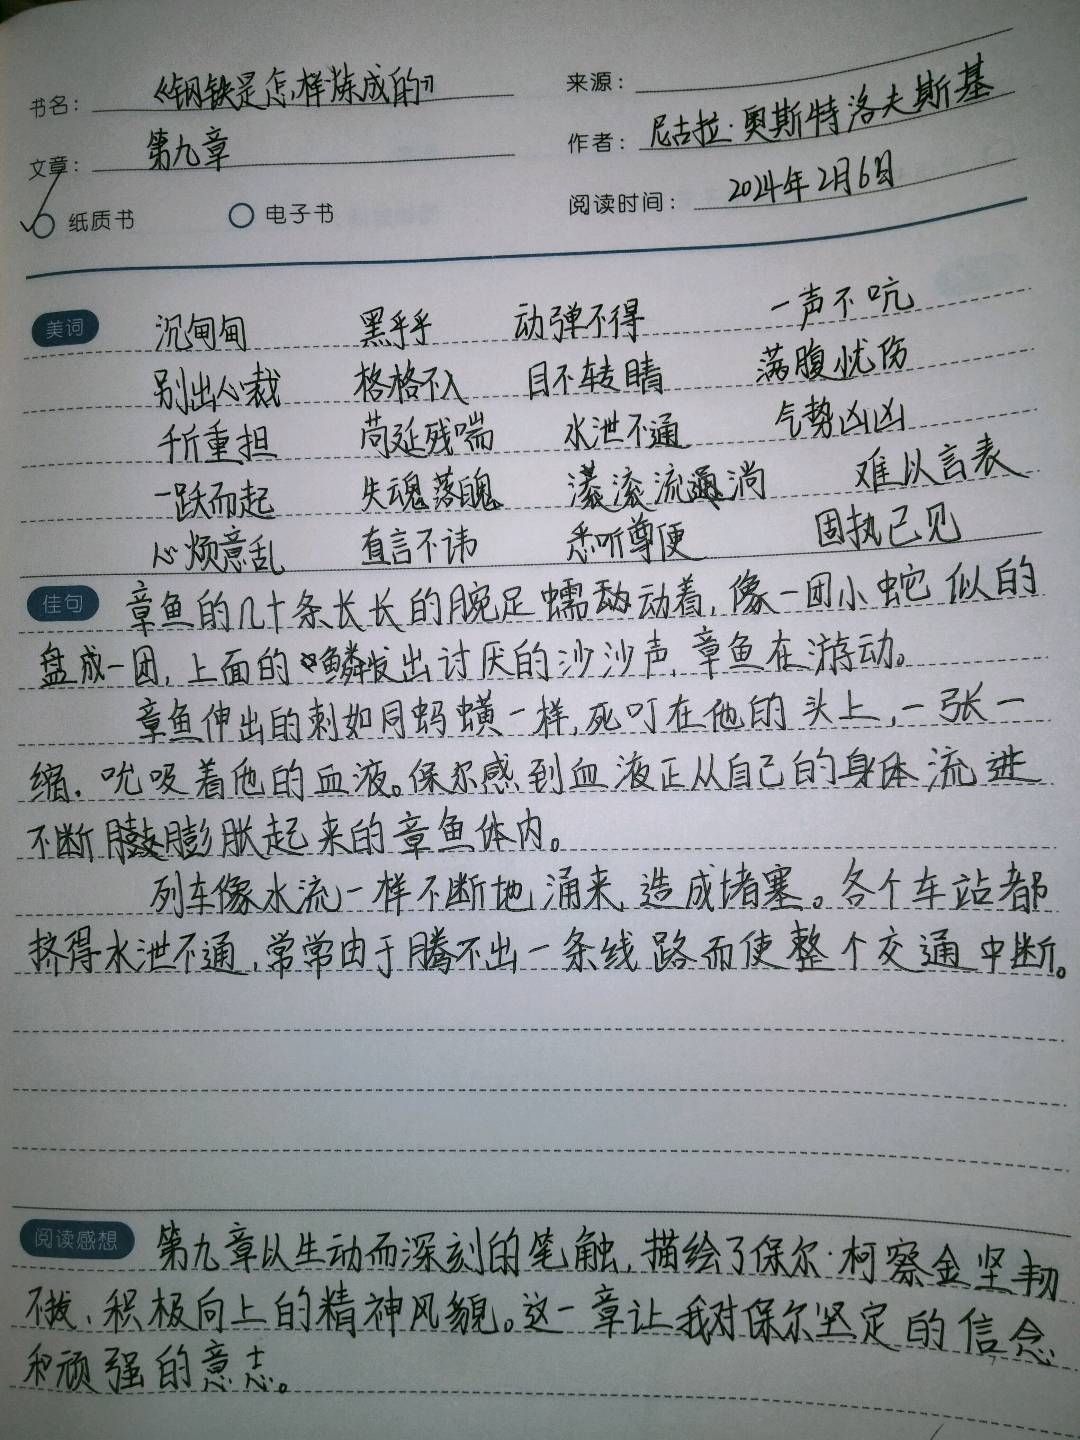 书名： 《钢铁是怎样炼成的》 来源：
文章： 第九章 作者： 尼古拉·奥斯特洛夫斯基
纸质书 电子书 阅读时间： 2024年2月6日
美词 沉甸甸 黑乎乎 动弹不得 一声不吭
别出心裁 格格不入 目不转睛 满腹忧伤
千斤重担 苟延残喘 水泄不通 气势凶凶
一跃而起 失魂落魄 滚滚流淌 难以言表
心烦意乱 直言不讳 悉听尊便 固执己见
佳句 章鱼的几十条长长的腕足蠕动着，像一团小蛇似的
盘成一团，上面的鳞发出讨厌的沙沙声，章鱼在游动。
章鱼伸出的刺如同蚂蟥一样，死叮在他的头上，一张一
缩，吮吸着他的血液。保尔感到血液正从自己的身体流进
不断膨胀起来的章鱼体内。
列车像水流一样不断地涌来，造成堵塞。各个车站都
挤得水泄不通，常常由于腾不出一条线路而使整个交通中断。
阅读感想 第九章以生动而深刻的笔触，描绘了保尔·柯察金坚韧
不拔、积极向上的精神风貌。这一章让我对保尔坚定的信念
和顽强的意志。